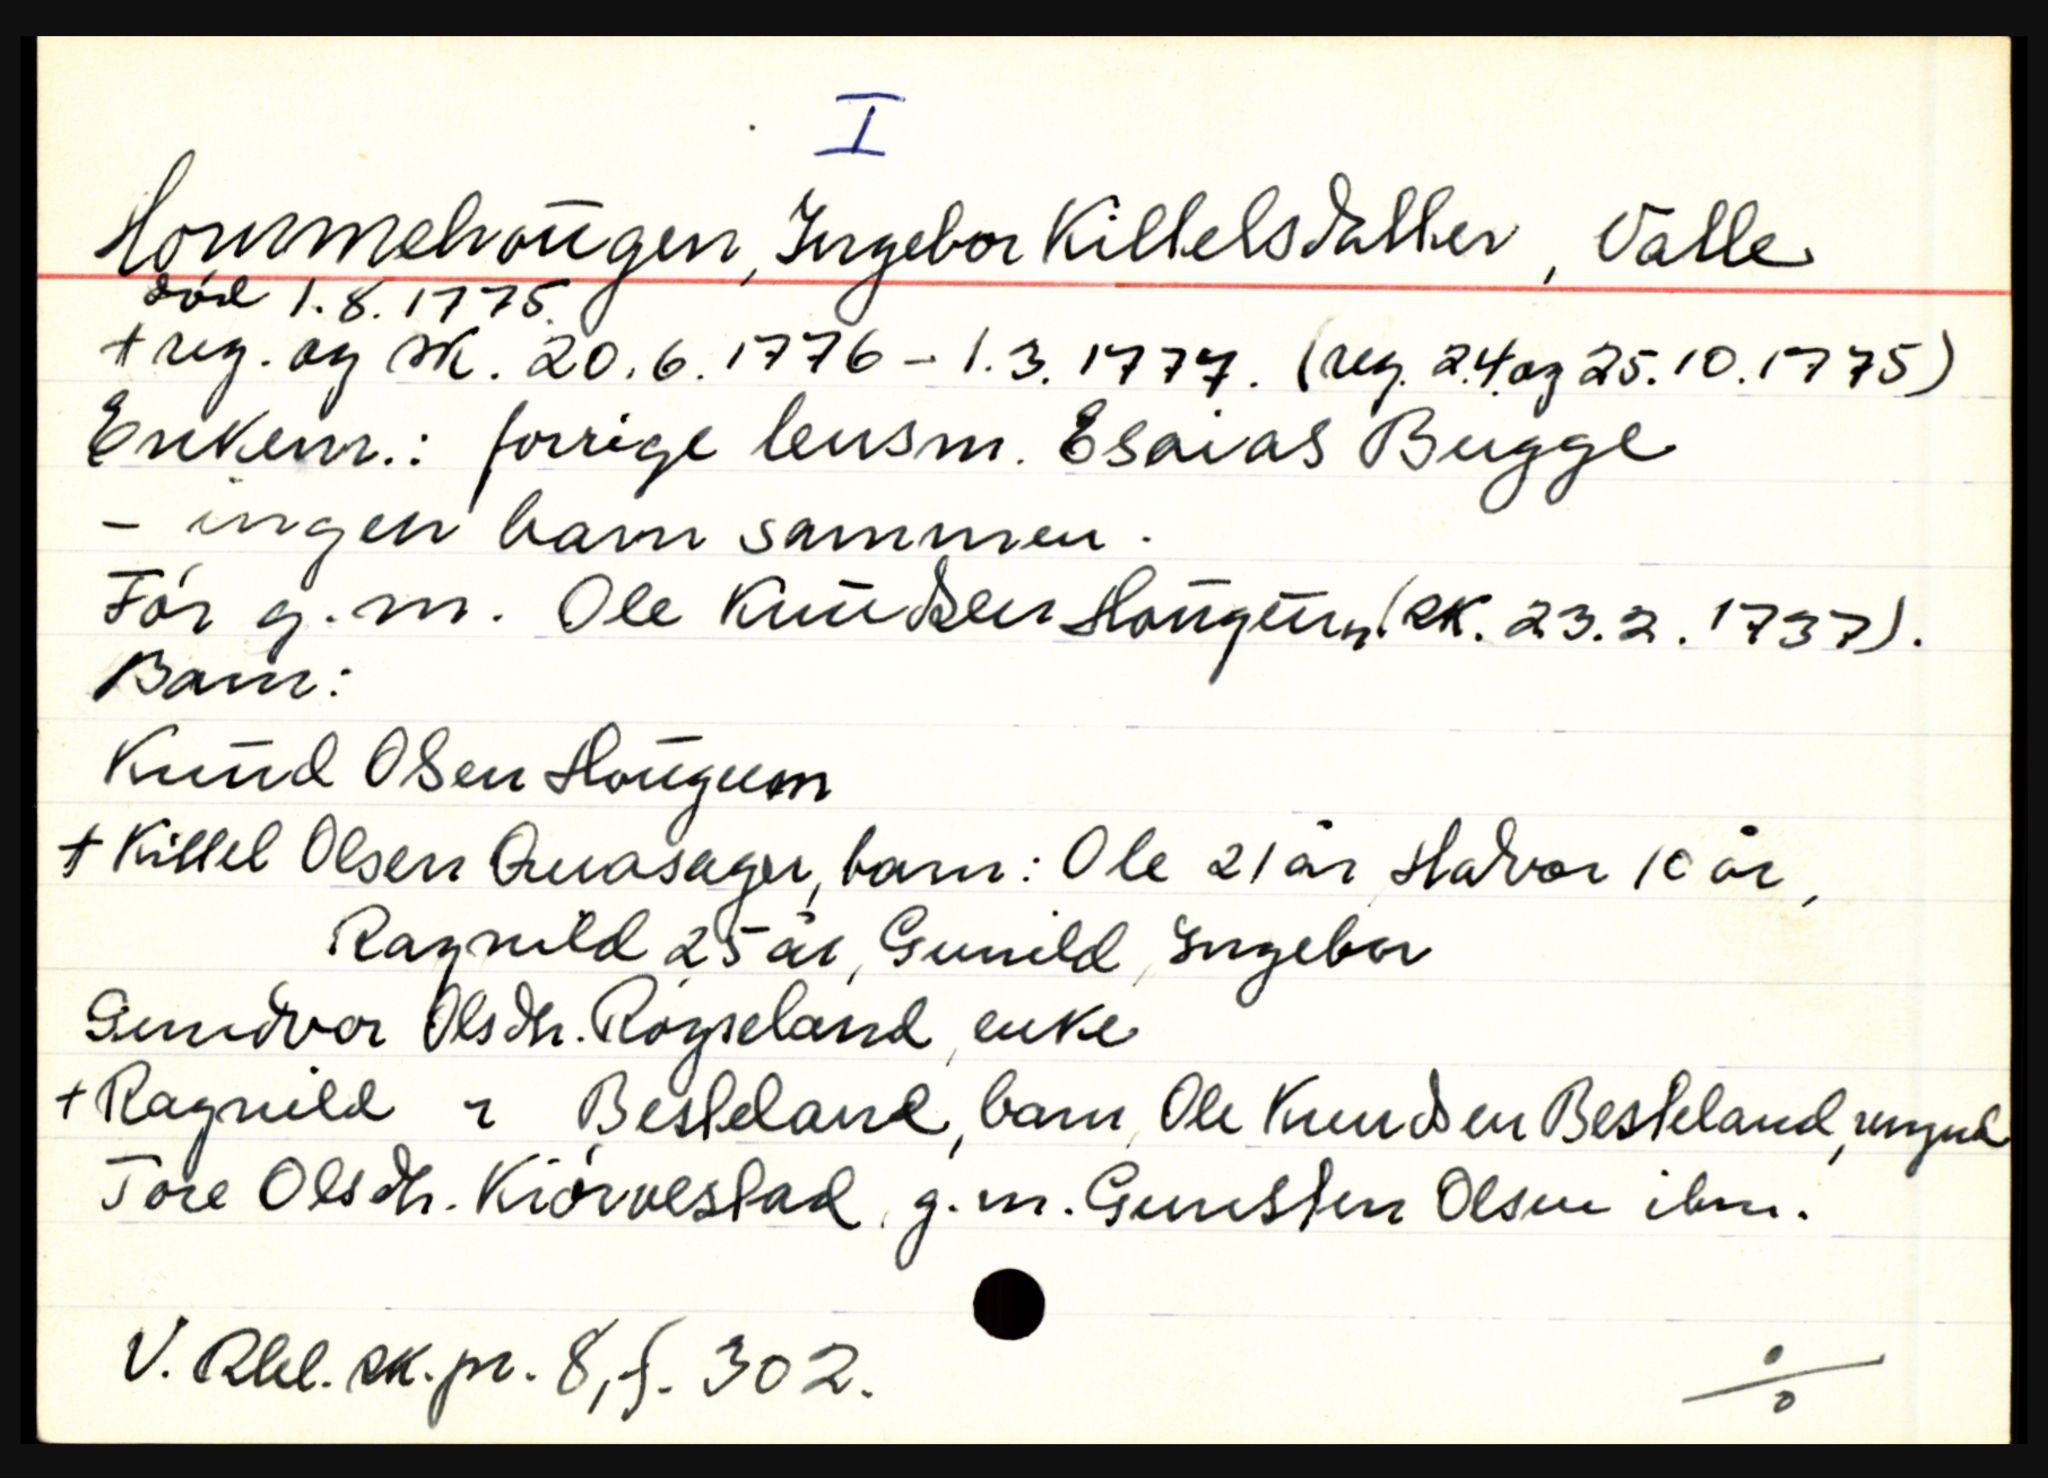 I
Hommehougen, Ingebor Kittelsdatter, Valle
död 1.8.1775.
+ reg. og sk. 20.6.1776 - 1.3.1777. (reg. 24. og 25.10.1775)
Enkem.: forrige lensm. Esaias Bugge
- ingen barn sammen.
För g.m. Ole Knudsen Hougum, (sk. 23.2.1737).
Barn:
Knud Olsen Hougum
+ Kittel Olsen Quasager, barn: Ole 21 år Halvor 10 år,
Ragnild 25 år, Gunild, Ingebor
Gundvor Olsdtr. Röyseland, enke
+ Ragnild " Besteland, barn, Ole Knudsen Besteland, mynd
Tore Olsdtr. Kiörvestad, g.m. Gunsten Olsen ibm.
V. Rbl. sk.pr. 8, f. 302.